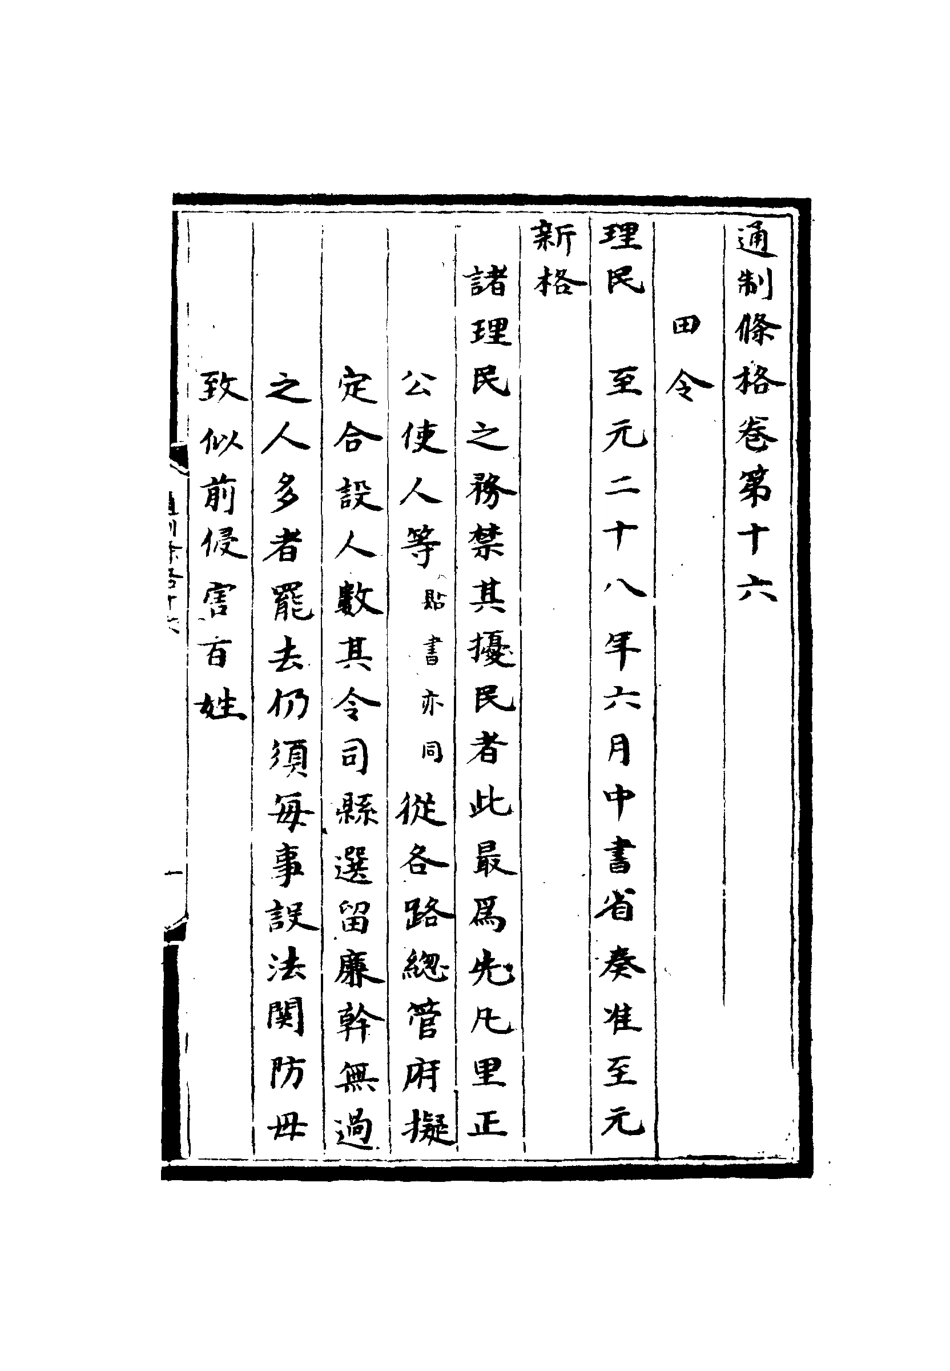 通制條格卷第十六
田令
理民　至元二十八年六月中書省奏准至元
新格
諸理民之務禁其擾民者此最爲先凡里正
公使人等貼書亦同從各路總管府擬
定合設人數其令司縣選留廉幹無過
之人多者罷去仍須每事設法關防毋
致似前侵害百姓
一